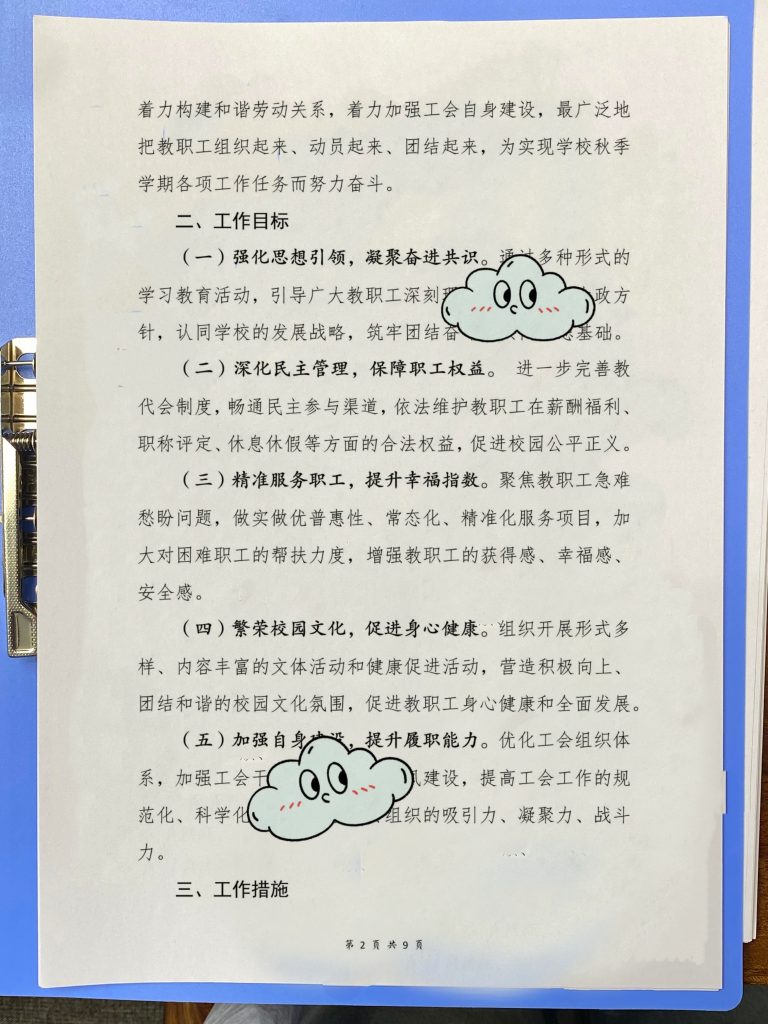 着力构建和谐劳动关系，着力加强工会自身建设，最广泛地
把教职工组织起来、动员起来、团结起来，为实现学校秋季
学期各项工作任务而努力奋斗。
二、工作目标
（一）强化思想引领，凝聚奋进共识。通过多种形式的
学习教育活动，引导广大教职工深刻 政方
针，认同学校的发展战略，筑牢团结奋 基础。
（二）深化民主管理，保障职工权益。 进一步完善教
代会制度，畅通民主参与渠道，依法维护教职工在薪酬福利、
职称评定、休息休假等方面的合法权益，促进校园公平正义。
（三）精准服务职工，提升幸福指数。聚焦教职工急难
愁盼问题，做实做优普惠性、常态化、精准化服务项目，加
大对困难职工的帮扶力度，增强教职工的获得感、幸福感、
安全感。
（四）繁荣校园文化，促进身心健康。组织开展形式多
样、内容丰富的文体活动和健康促进活动，营造积极向上、
团结和谐的校园文化氛围，促进教职工身心健康和全面发展。
（五）加强自身建设，提升履职能力。优化工会组织体
系，加强工会干 建设，提高工会工作的规
范化、科学化 组织的吸引力、凝聚力、战斗
力。
三、工作措施
第 2 页 共 9 页